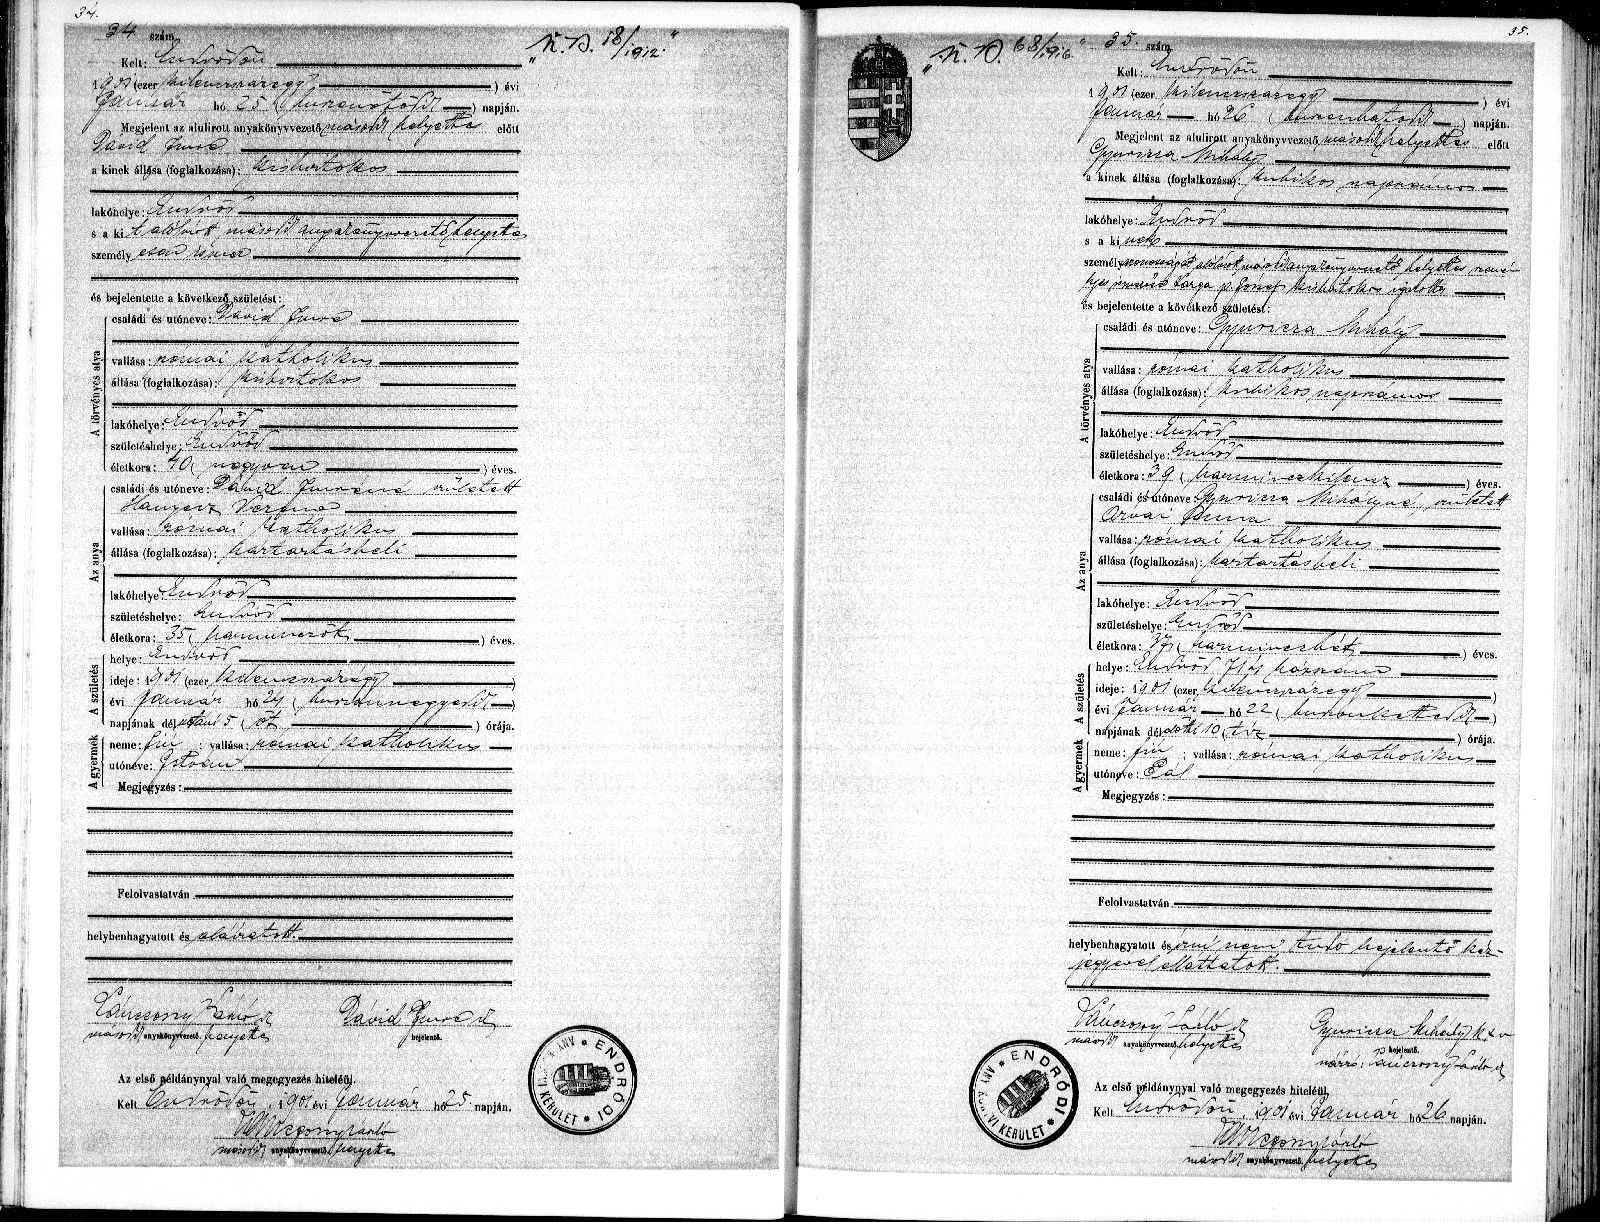 34.
34 szám.
"N. D. 18/1912."
Kelt: Endrődön
1901 (ezer kilenczszázegy) évi
Január hó 25 (huszonötödik) napján.
Megjelent az alulirott anyakönyvvezető második helyettes előtt
Dávid Imre
a kinek állása (foglalkozása): kisbirtokos
lakóhelye: Endrőd
s a kit alólirott másod anyakönyvvezető helyettes
személyesen ismer
és bejelentette a következő születést:
A törvényes atya
családi és utóneve: Dávid Imre
vallása: római katholikus
állása (foglalkozása): kisbirtokos
lakóhelye: Endrőd
születéshelye: Endrőd
életkora: 40 (negyven) éves.
Az anya
családi és utóneve: Dávid Imréné született
Hanyecz Verona
vallása: római katholikus
állása (foglalkozása): háztartásbeli
lakóhelye: Endrőd
születéshelye: Endrőd
életkora: 35 (harminczöt) éves.
A születés
helye: Endrőd
ideje: 1901 (ezer kilenczszázegy)
évi Január hó 24 (huszonnegyedik)
napjának délutáni 5 (öt) órája.
A gyermek
neme: fiú ; vallása: római katholikus
utóneve: István
Megjegyzés:
Felolvastatván
helybenhagyatott és aláiratott.
másod anyakönyvvezető helyettes
Dávid Imre
bejelentő.
Az első példánynyal való megegyezés hiteléül.
Kelt Endrődön, 1901 évi Január hó 25. napján.
másod anyakönyvvezető helyettes
ENDRŐDI ANY KERÜLET
35.
"N. D. 68/1916"
35. szám.
Kelt: Endrődön
1901 (ezer kilenczszázegy) évi
Január hó 26 (huszonhatodik) napján.
Megjelent az alulirott anyakönyvvezető második helyettes előtt
Gyuricza Mihály
a kinek állása (foglalkozása): kubikos napszámos
lakóhelye: Endrőd
s a kinek
személyazonosságát alólirott másod anyakönyvvezető helyettes
Varga p. József kisbirtokos igazolta
és bejelentette a következő születést:
A törvényes atya
családi és utóneve: Gyuricza Mihály
vallása: római katholikus
állása (foglalkozása): kubikos napszámos
lakóhelye: Endrőd
születéshelye: Endrőd
életkora: 39 (harminczkilencz) éves.
Az anya
családi és utóneve: Gyuricza Mihályné, született
Arvai Anna
vallása: római katholikus
állása (foglalkozása): háztartásbeli
lakóhelye: Endrőd
születéshelye: Endrőd
életkora: 37 (harminczhét) éves.
A születés
helye: Endrőd házszám
ideje: 1901 (ezer kilenczszázegy)
évi Január hó 22 (huszonkettedik)
napjának délelőtti 10 (tíz) órája.
A gyermek
neme: fiú ; vallása: római katholikus
utóneve: Pál
Megjegyzés:
Felolvastatván
helybenhagyatott és irni nem tudó bejelentő kéz-
jegyével elláttatott.
másod anyakönyvvezető helyettes
Gyuricza Mihály k x v
bejelentő.
Az első példánynyal való megegyezés hiteléül.
Kelt Endrődön, 1901 évi Január hó 26 napján.
másod anyakönyvvezető helyettes
ENDRŐDI ANY KÖNYVI KERÜLET